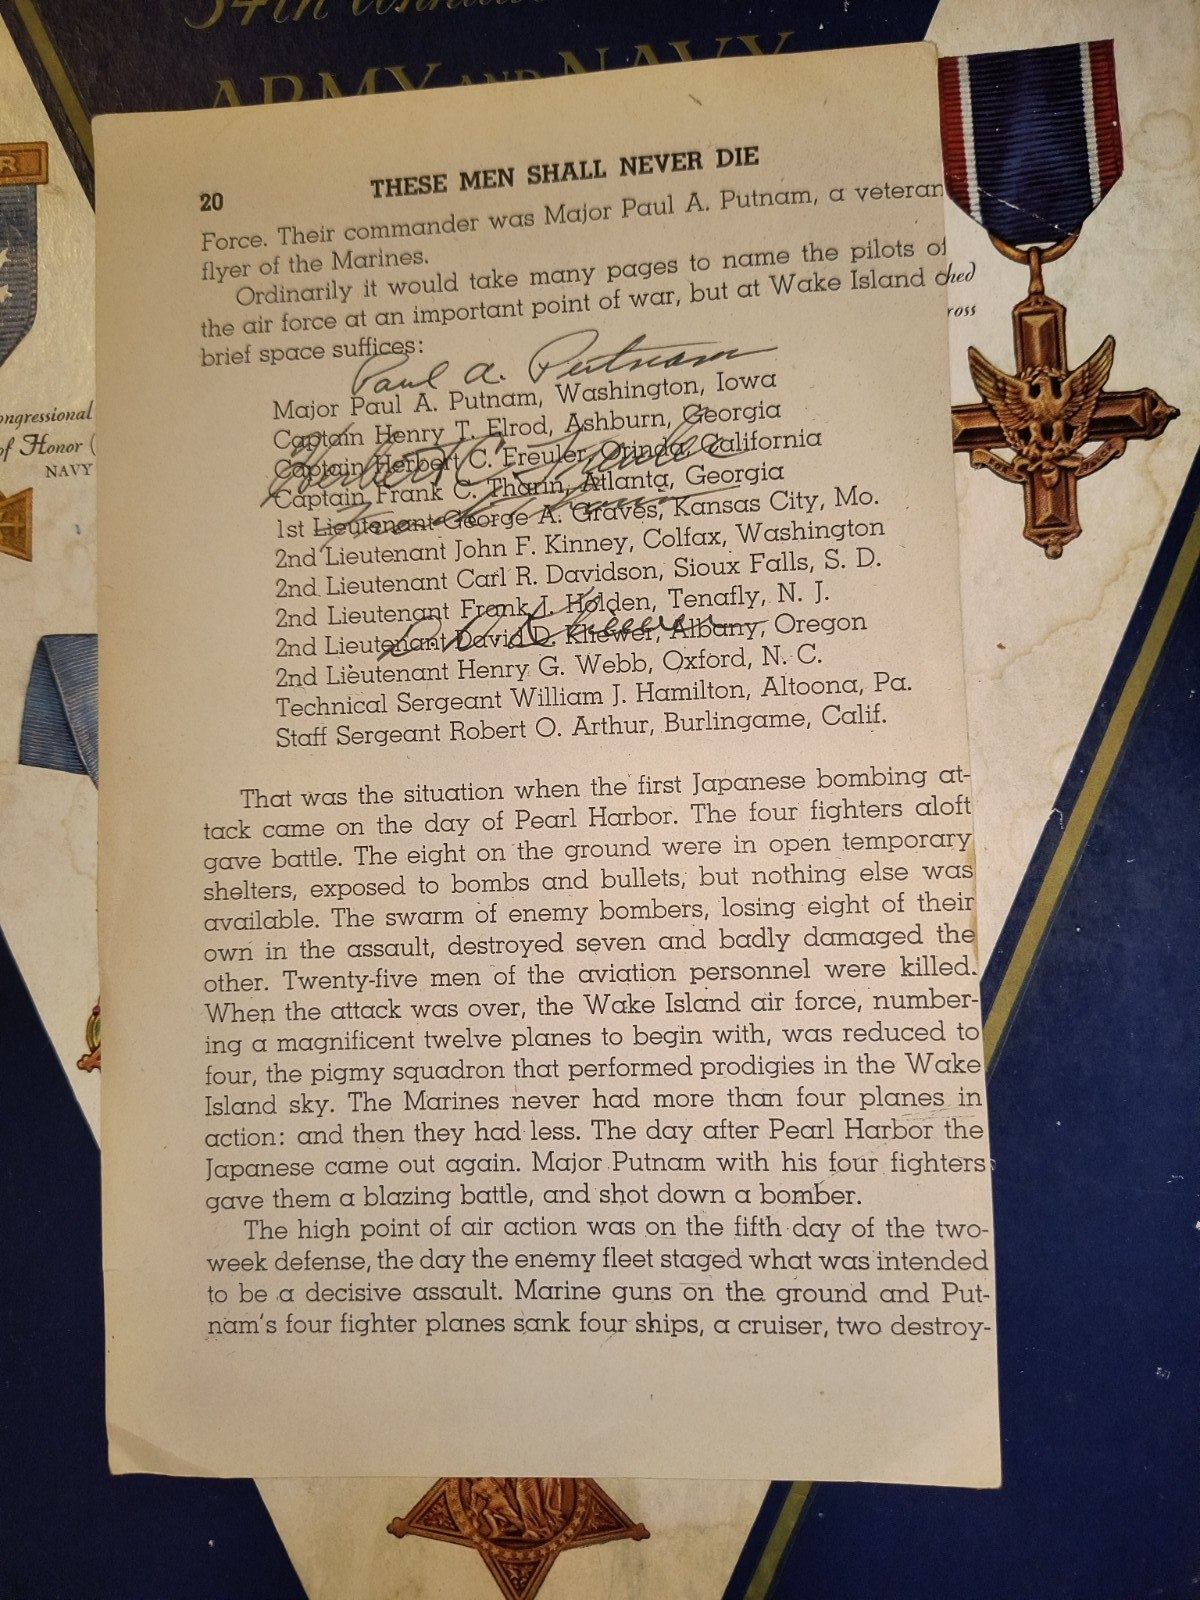 34th
ARMY AND NAVY
R
20 THESE MEN SHALL NEVER DIE
Force. Their commander was Major Paul A. Putnam, a veteran
flyer of the Marines.
Ordinarily it would take many pages to name the pilots of
the air force at an important point of war, but at Wake Island a
brief space suffices:
Paul A. Putnam
Major Paul A. Putnam, Washington, Iowa
Captain Henry T. Elrod, Ashburn, Georgia
Herbert C. Freuler
Captain Herbert C. Freuler, Orinda, California
Captain Frank C. Tharin, Atlanta, Georgia
1st Lieutenant George A. Graves, Kansas City, Mo.
2nd Lieutenant John F. Kinney, Colfax, Washington
2nd Lieutenant Carl R. Davidson, Sioux Falls, S. D.
2nd Lieutenant Frank J. Holden, Tenafly, N. J.
D. D. Kliewer
2nd Lieutenant David D. Kliewer, Albany, Oregon
2nd Lieutenant Henry G. Webb, Oxford, N. C.
Technical Sergeant William J. Hamilton, Altoona, Pa.
Staff Sergeant Robert O. Arthur, Burlingame, Calif.
That was the situation when the first Japanese bombing at-
tack came on the day of Pearl Harbor. The four fighters aloft
gave battle. The eight on the ground were in open temporary
shelters, exposed to bombs and bullets, but nothing else was
available. The swarm of enemy bombers, losing eight of their
own in the assault, destroyed seven and badly damaged the
other. Twenty-five men of the aviation personnel were killed.
When the attack was over, the Wake Island air force, number-
ing a magnificent twelve planes to begin with, was reduced to
four, the pigmy squadron that performed prodigies in the Wake
Island sky. The Marines never had more than four planes in
action: and then they had less. The day after Pearl Harbor the
Japanese came out again. Major Putnam with his four fighters
gave them a blazing battle, and shot down a bomber.
The high point of air action was on the fifth day of the two-
week defense, the day the enemy fleet staged what was intended
to be a decisive assault. Marine guns on the ground and Put-
nam's four fighter planes sank four ships, a cruiser, two destroy-
ongressional
of Honor (
NAVY
hed
ross